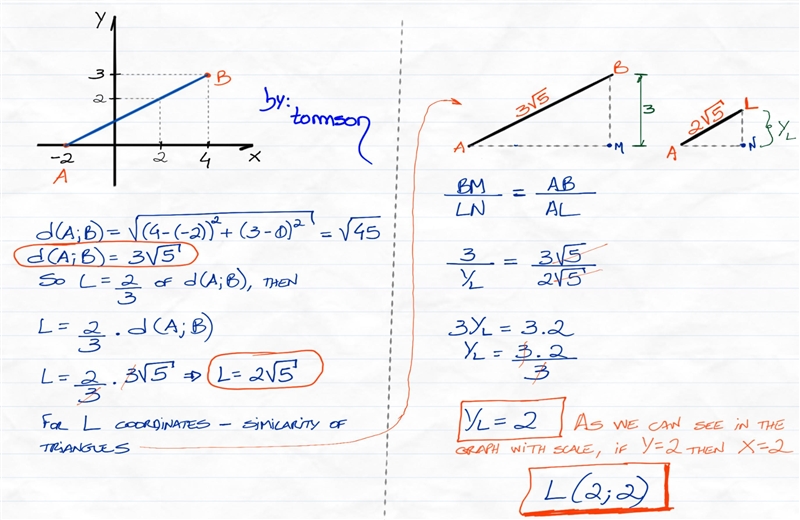 Y
3
2
B
-2
2
4
X
A
by:
tommson
d(A;B) = √((4-(-2))² + (3-0)²) = √45
d(A;B) = 3√5
So L = 2/3 OF d(A;B), THEN
L = 2/3 . d(A;B)
L = 2/3 . 3√5 ⇒ L = 2√5
FOR L COORDINATES - SIMILARITY OF
TRIANGLES
B
3√5
3
A
M
L
2√5
YL
A
N
BM/LN = AB/AL
3/YL = 3√5/2√5
3YL = 3.2
YL = 3.2/3
YL = 2 AS WE CAN SEE IN THE
GRAPH WITH SCALE, IF Y=2 THEN X=2
L(2;2)